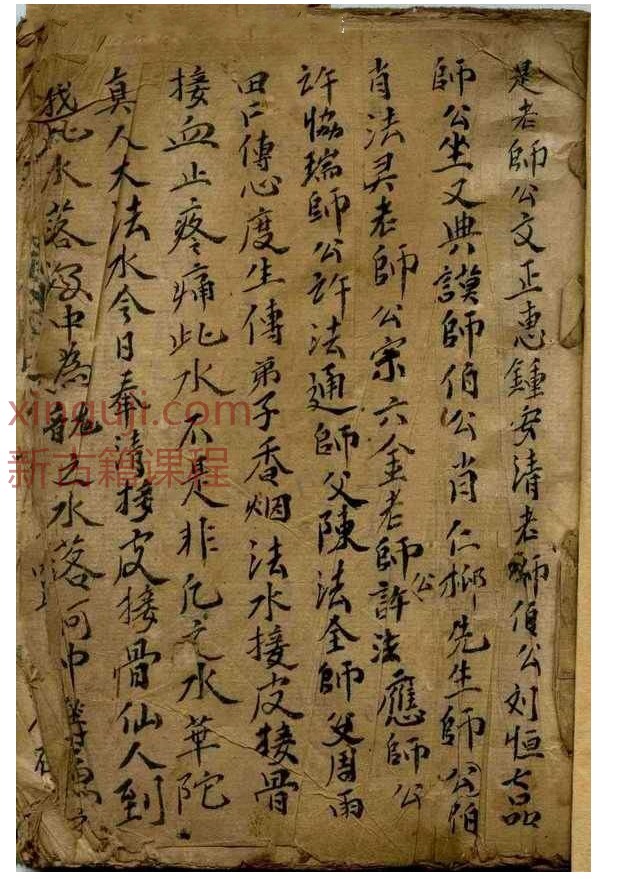 是老師公文正惠鍾安清老師伯公刘恒
師公坐又典謨師伯公肖仁榔先生師公伯
肖法灵老師公宗六金老師公許法應師公
許協瑞師公許法通師父陳法全師父周雨
田仁傳心度生傳弟子香烟法水接皮接骨
接血止疼痛此水不是非凡之水華陀
真人大法水今日奉請接皮接骨仙人到
此水落 中為 之水落河中
xinguji.com
新古籍课程